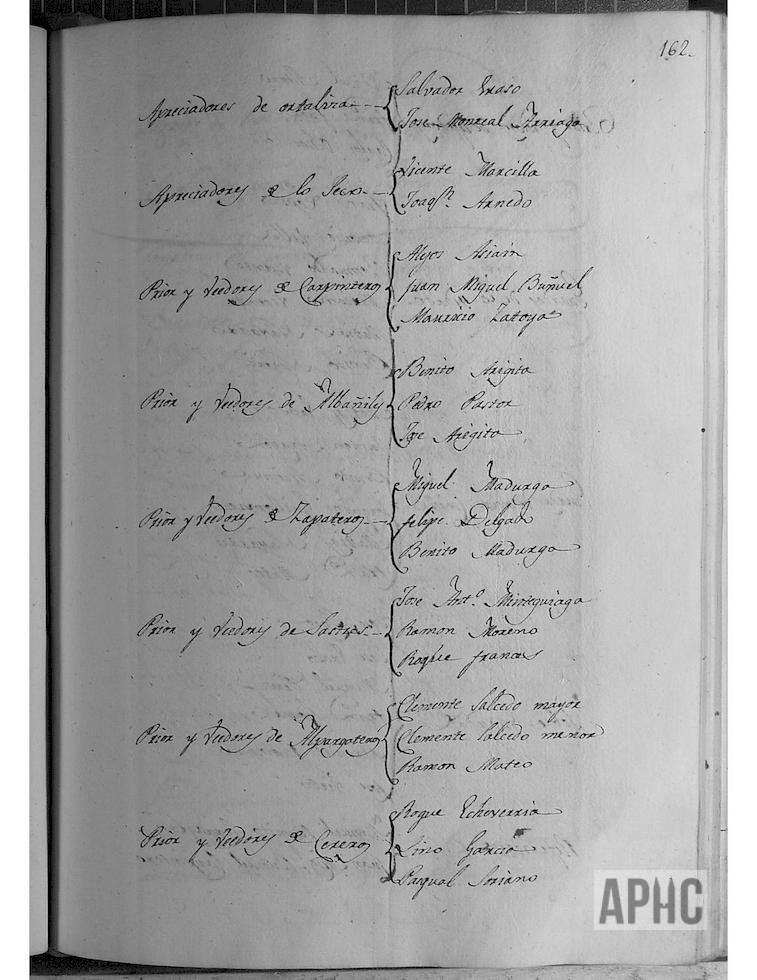 162.
Apreciadores de ortaliza
Salvador Eraso
Jose Monreal Arriaga
Apreciadores de lo Seco
Vicente Marcilla
Joaqn. Arnedo
Prior y Veedores de Carpinteros
Alejos Asiain
Juan Miguel Buñuel
Mauricio Zatoya
Prior y Veedores de Albañiles
Benito Arigita
Pedro Pastor
Jose Arigita
Prior y Veedores de Zapateros
Miguel Madurga
felipe Delgado
Benito Madurga
Prior y Veedores de Sastres
Jose Anto. Minteguiaga
Ramon Moreno
Roque frances
Prior y Veedores de Alpargateros
Clemente Salcedo mayor
Clemente Salcedo menor
Ramon Mateo
Prior y Veedores de Cereros
Roque Echeverria
Lino Garcia
Pasqual Soriano
APHC